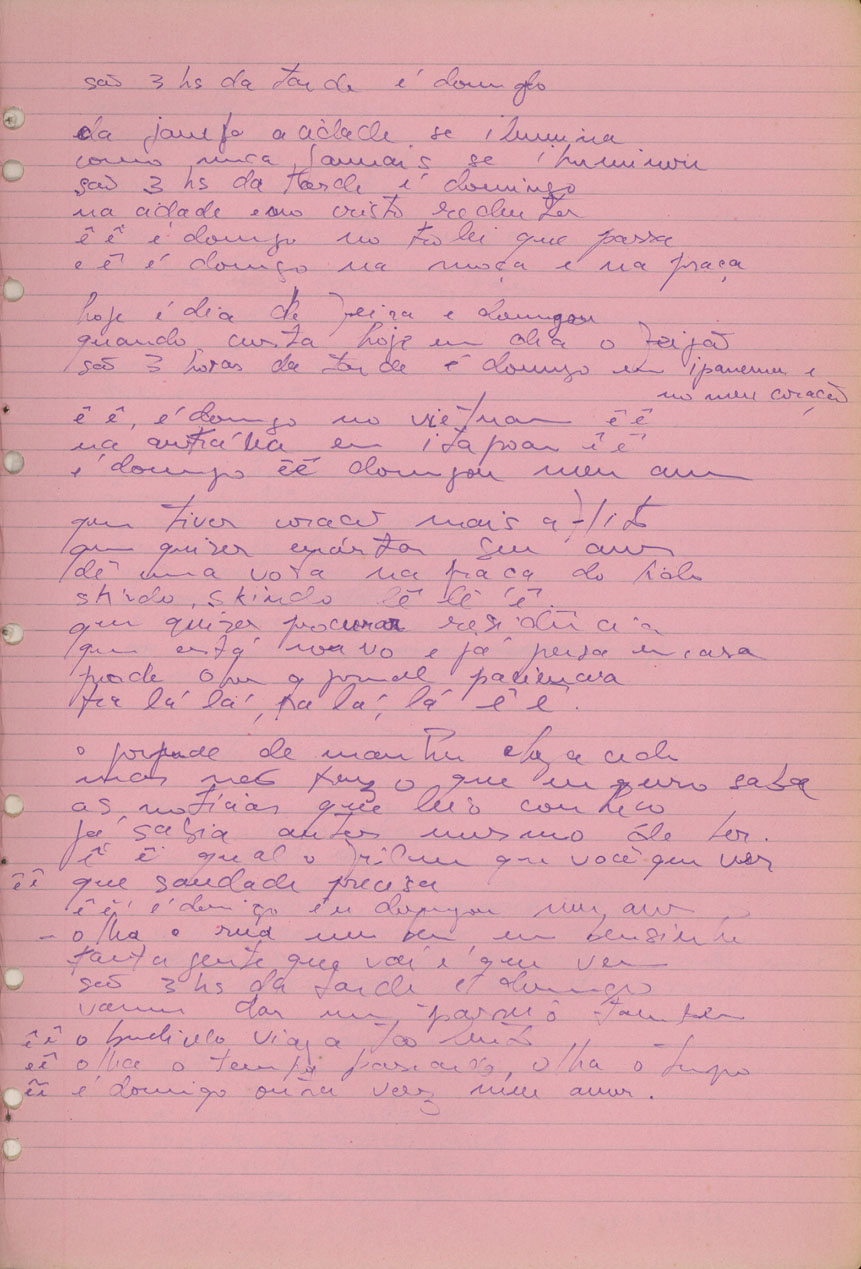 são 3 hs da tarde é domingo
da janela a cidade se ilumina
como nuca jamais se iluminou
são 3 hs da tarde é domingo
na cidade e no cristo redentor
ê ê é domingo no trolei que passa
e ê é domingo na moça e na praça
hoje é dia de feira e domingou
quando custa hoje em dia o feijão
são 3 horas da tarde é domingo em ipanema e
no meu coração
ê ê, é domingo no vietnam ê ê
na austrália em itapoan ê ê
é domingo êê domingou meu amor
quem tiver coração mais aflito
quem quizer encontrar seu amor
dê uma volta na praça do lido
skindo, skindo lê lê ê
quem quizer procurar residência
quem está noivo e já pensa em casa
pode o paciência
tra lá lá, tra lá, lá ê ê.
o jornal de manhã chega cedo
mas não traz o que eu quero saber
as notícias que leio conheço
já sabia antes mesmo de ler.
ê ê qual o filme que você quer ver
êê que saudade precisa
ê ê é domingo êê domingou meu amor
- olha a rua meu bem meu benzinho
tanta gente que vai e que vem
são 3 hs da tarde é domingo
vamos dar um passeio também
êê o bondinho viaja tão lento
êê olha o tempo passando, olha o tempo
êê é domingo outra vez meu amor.